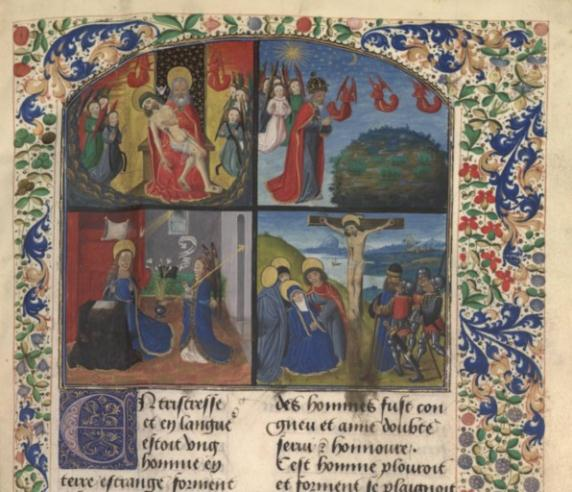 En tristresse
et en langue
estoit vng
homme en
terre estrange forment
des hommes fust con
gneu et ame doubte
serui & honnoure.
Cest homme plouroit
et forment se plaignoit